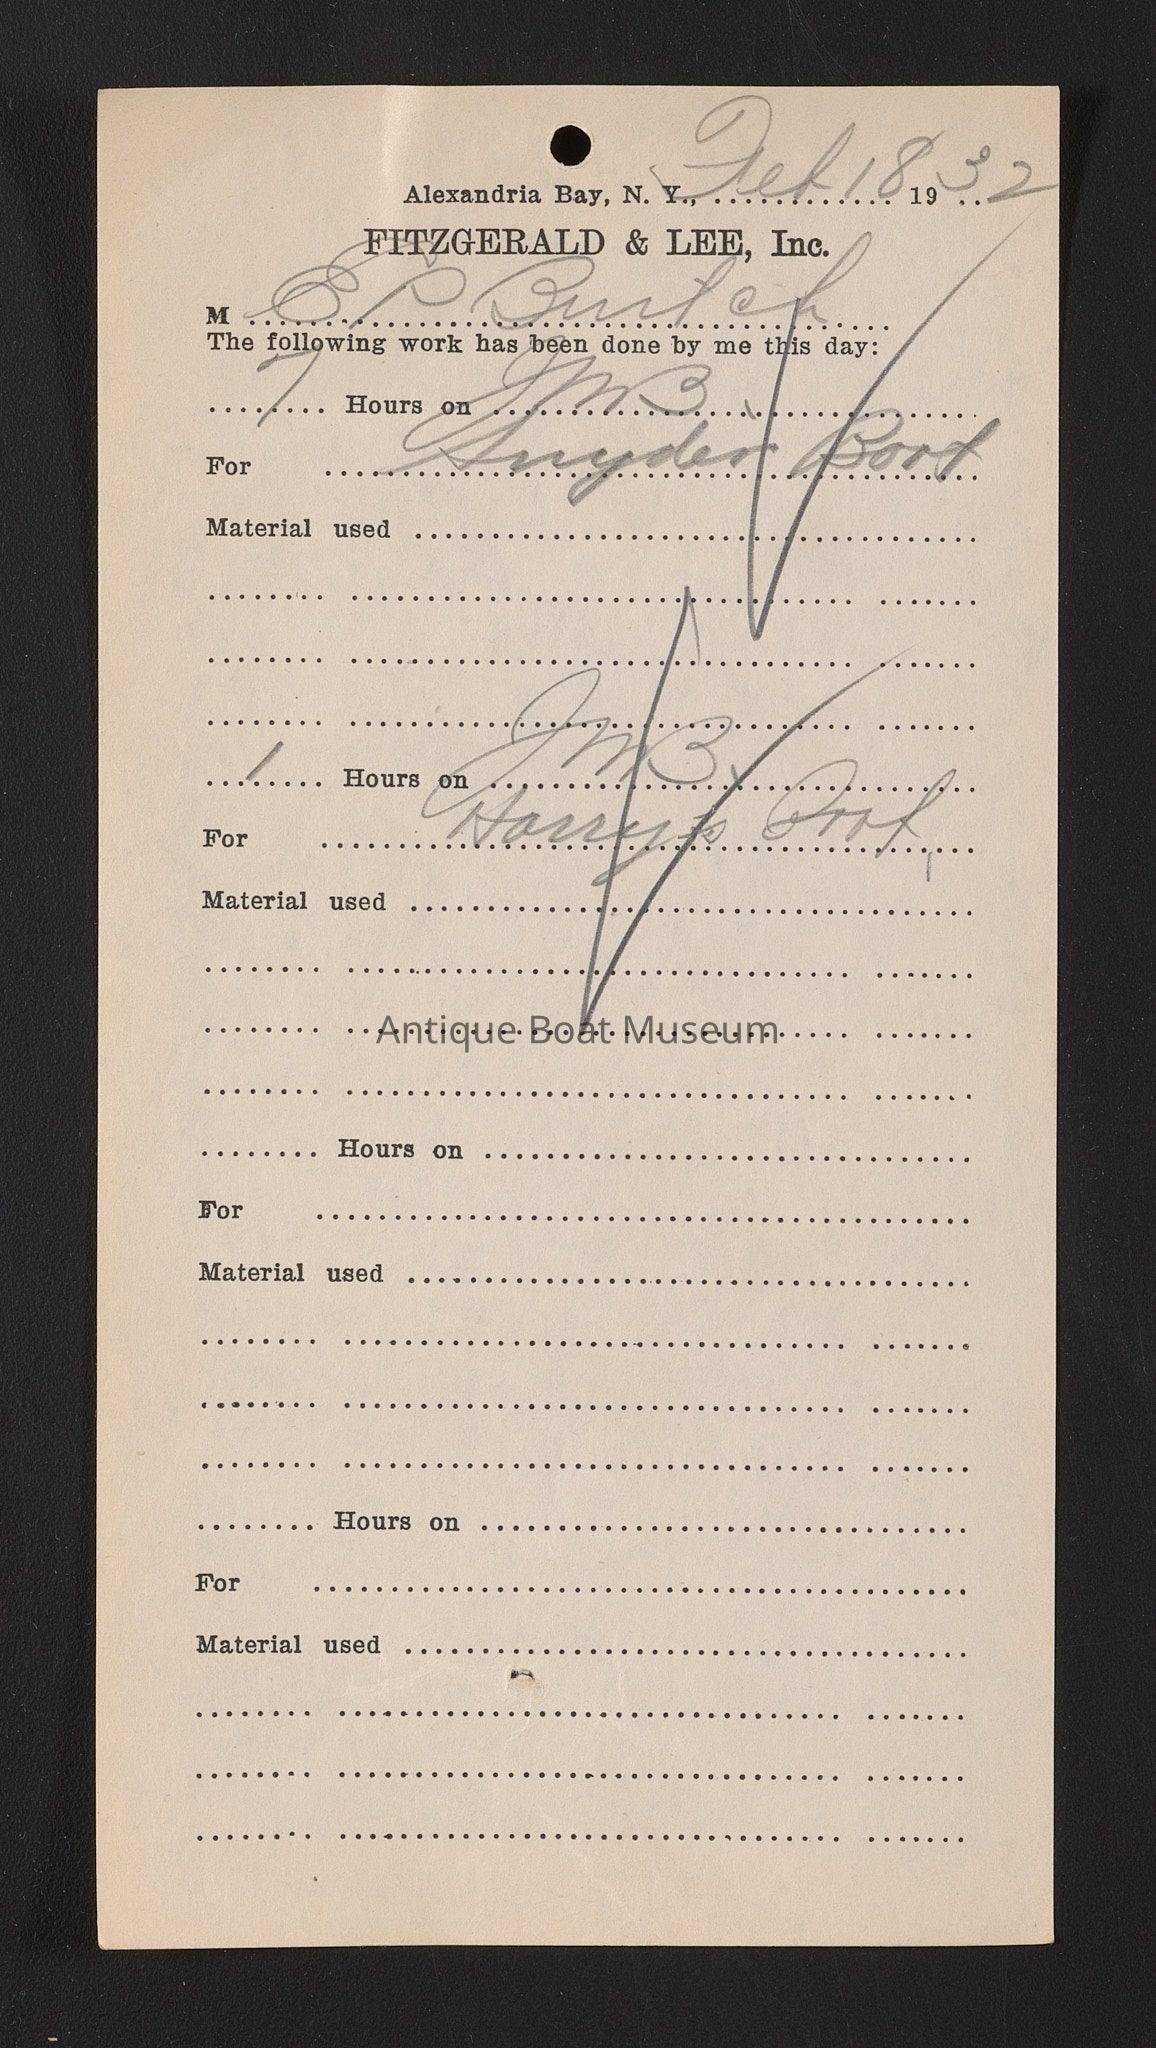 Alexandria Bay, N. Y., Feb 18 1932
FITZGERALD & LEE, Inc.
M E P Burtch
The following work has been done by me this day:
7 Hours on JMB
For Snyder Boat
Material used
1 Hours on JMB
For Harry's Boat
Material used
Antique Boat Museum
Hours on
For
Material used
Hours on
For
Material used